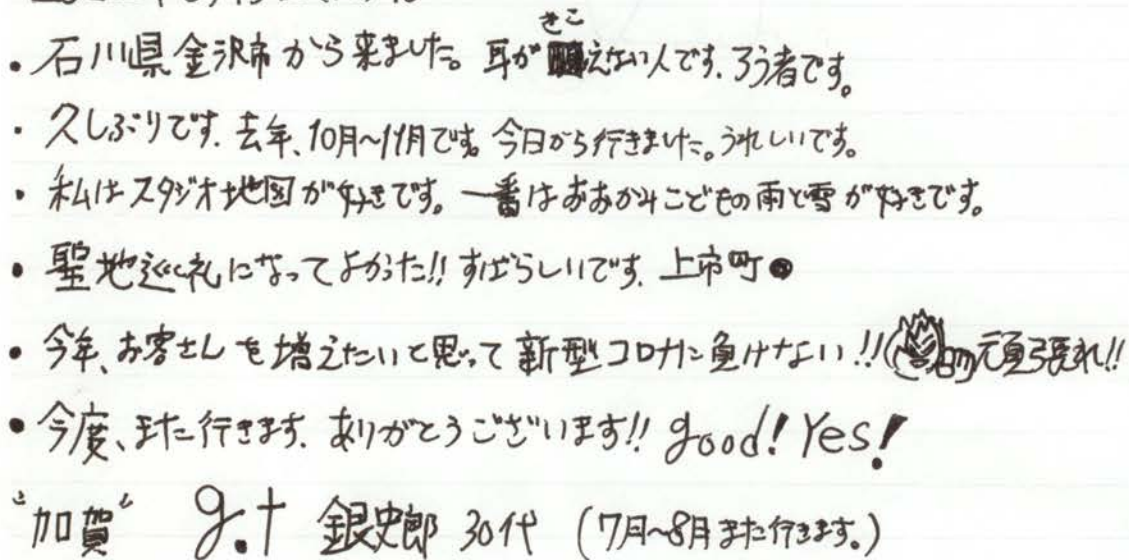 ・石川県金沢市から来ました。耳が聴えない人です。ろう者です。
きこ
・久しぶりです。去年、10月～11月です。今日から行きました。うれしいです。
・私はスタジオ地図が好きです。一番はおおかみこどもの雨と雪が好きです。
・聖地巡礼になってよかった!! すばらしいです。上市町
・今年、お客さんを増えたいと思って新型コロナに負けない!! 頑張れ!!
・今度、また行きます。ありがとうございます!! good! Yes!
"加賀" g.t 銀史郎 30代 (7月～8月また行きます。)